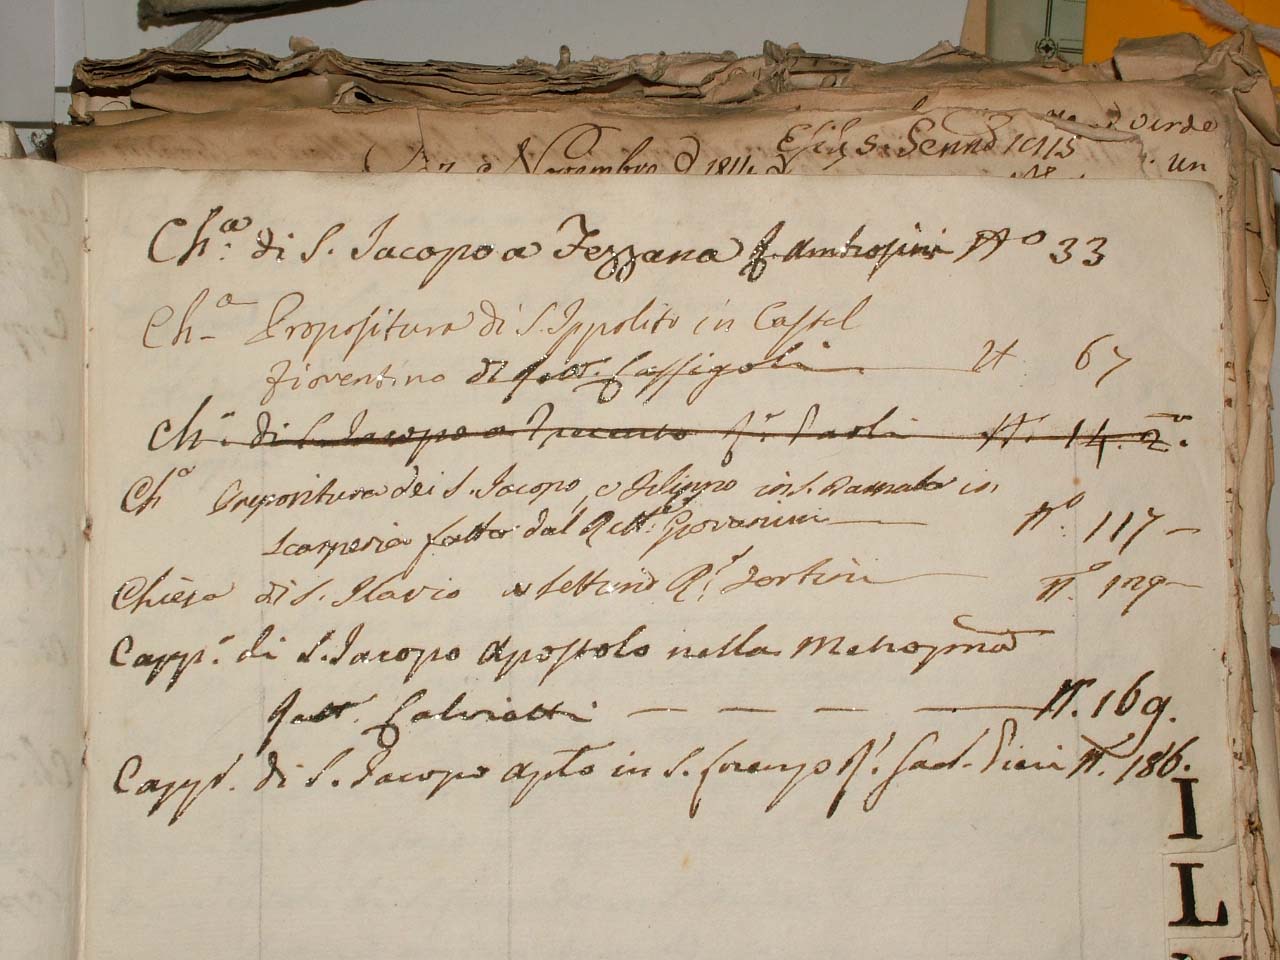 Novembre 1814
Un
Ch.ª di S. Jacopo a Fezzana f. Ambrosini Nº 33
Chª Propositura di S. Ippolito in Castel
fiorentino di Cassigoli 67
Ch.ª di S. Jacopo a P. Paoli N. 14. 2º
Chª Prepositura dei S. Jacopo, e Filippo in S. Barnaba in
Scarperia fatta dal Rett.e Giovannini Nº 117
Chiesa di S. Ilario a Settimo R.r Fortini Nº 129
Capp.ª di S. Jacopo Apostolo nella Metropna
Salviatti N. 169.
Capp.ª di S. Jacopo apto in S. Lorenzo R.r Gad. Pieri N. 186.
I
L